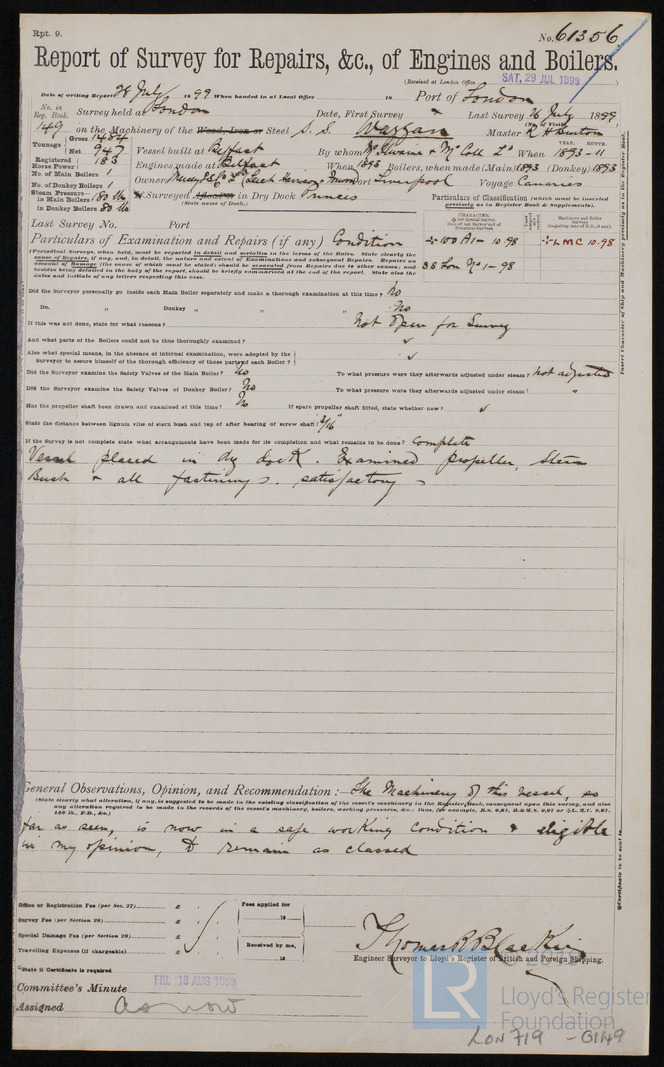 Rpt. 9.
No. 61356
Report of Survey for Repairs, &c., of Engines and Boilers.
(Received at London Office
SAT, 29 JUL 1899
Date of writing Report 28 July 1899 When handed in at Local Office 18 Port of London
No. in Reg. Book. Survey held at London Date, First Survey Last Survey 26 July 1899
(No. of Visits
149 on the Machinery of the Wood, Iron or Steel S. S. Wazzan Master
Tonnage Gross 1484
Net 947
Registered Horse Power 183
No. of Main Boilers 1
No. of Donkey Boilers 1
Steam Pressure in Main Boilers 160 lb
in Donkey Boilers 80 lb
Vessel built at Belfast By whom McIlwaine & McColl Ld When 1893-11
YEAR. MONTH.
Engines made at Belfast When 1893 Boilers, when made (Main) 1893 (Donkey) 1893
Owners Port Liverpool Voyage Canaries
If Surveyed Afloat or in Dry Dock Princes
(State name of Dock.)
Particulars of Classification (which must be inserted precisely as in Register Book & Supplements).
CHARACTER.
Machinery and Boiler Surveys
Last Survey No. Port
Particulars of Examination and Repairs (if any) Condition
100 A1 - 10.98
LMC 10.98
SS Lon No 1 - 98
(Periodical Surveys, when held, must be reported in detail and seriatim in the terms of the Rules. State clearly the
cause of Repairs, if any, and, in detail, the nature and extent of Examinations and subsequent Repairs. Repairs on
account of Damage (the cause of which must be stated) should be separated from Repairs due to other causes; and
besides being detailed in the body of the report, should be briefly summarised at the end of the report. State also the
dates and initials of any letters respecting this case.
Did the Surveyor personally go inside each Main Boiler separately and make a thorough examination at this time? No
Do. " Donkey " " " No
If this was not done, state for what reasons? Not open for Survey
And what parts of the Boilers could not be thus thoroughly examined?
Also what special means, in the absence of internal examination, were adopted by the
Surveyor to assure himself of the thorough efficiency of those parts of each Boiler?
Did the Surveyor examine the Safety Valves of the Main Boiler? No To what pressure were they afterwards adjusted under steam? Not adjusted
Did the Surveyor examine the Safety Valves of Donkey Boiler? No To what pressure were they afterwards adjusted under steam? "
Has the propeller shaft been drawn and examined at this time? No If spare propeller shaft fitted, state whether new?
State the distance between lignum vitæ of stern bush and top of after bearing of screw shaft?
If the Survey is not complete state what arrangements have been made for its completion and what remains to be done? Complete
Vessel placed in dry dock. Examined propeller, Stern
Bush & all fastenings. satisfactory
General Observations, Opinion, and Recommendation:— The Machinery of this vessel, so
(State clearly what alteration, if any, is suggested to be made in the existing classification of the vessel's machinery in the Register Book, consequent upon this survey, and also
any alteration required to be made in the records of the vessel's machinery, boilers, working pressures, &c.; thus, for example, B.S. 9,97, B.&M.S. 9,97 or L.M.C. 9,97,
140 lb., F.D., &c.)
far as seen, is now in a safe working condition & eligible
in my opinion, to remain as classed
Office or Registration Fee (per Sec. 27) £
Survey Fee (per Section 28) £
Special Damage Fee (per Section 28) £
Travelling Expenses (if chargeable) £
Fees applied for
18
Received by me,
18
Thomas R Blackie
Engineer Surveyor to Lloyd's Register of British and Foreign Shipping.
State if Certificate is required
Committee's Minute FRI, 18 AUG 1899
Assigned as now
Insert Character of Ship and Machinery precisely as in the Register Book.
Certificate to be sent to
LR
Lloyd's Register
Foundation
LON 719 - 0149